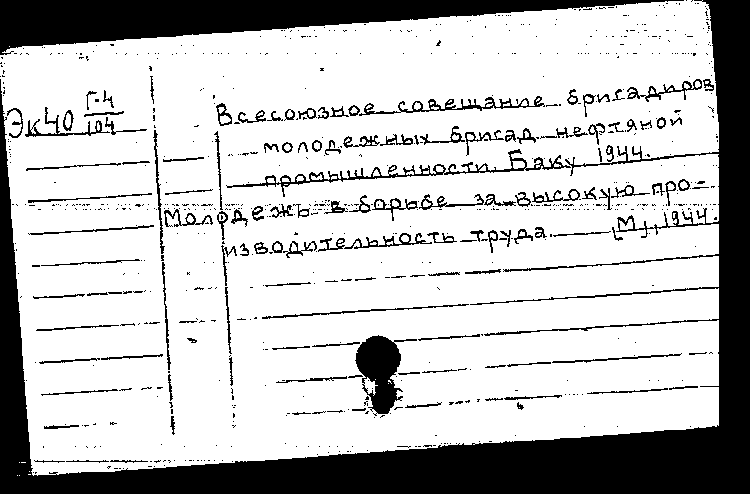 Эк40 Г-4/104
Всесоюзное совещание бригадиров
молодежных бригад нефтяной
промышленности. Баку. 1944.
Молодежь в борьбе за высокую про-
изводительность труда. [М], 1944.